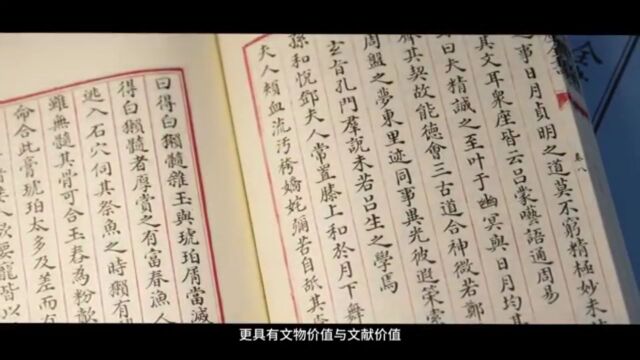 卷八
之事日月貞明之道莫不窮精極妙未
其文耳衆座皆云呂蒙囈語通周易
曰夫精誠之至叶于幽冥與日月均其
其契故能德會三古道合神微若鄭
周盤之夢東里迹同事異光被遐策索
玄旨孔門羣說未若呂生之學焉
孫和悅鄧夫人常置膝上和於月下舞
夫人頰血流污袴嬌姹彌苦自舐其
曰得白獺髓雜玉與琥珀屑當滅
得白獺髓者厚賞之有富春漁人
逃入石穴伺其祭魚之時獺有
雖無髓其骨可合玉舂為粉歕
命合此膏琥珀太多及差而有
欲要寵皆以
更具有文物价值与文献价值